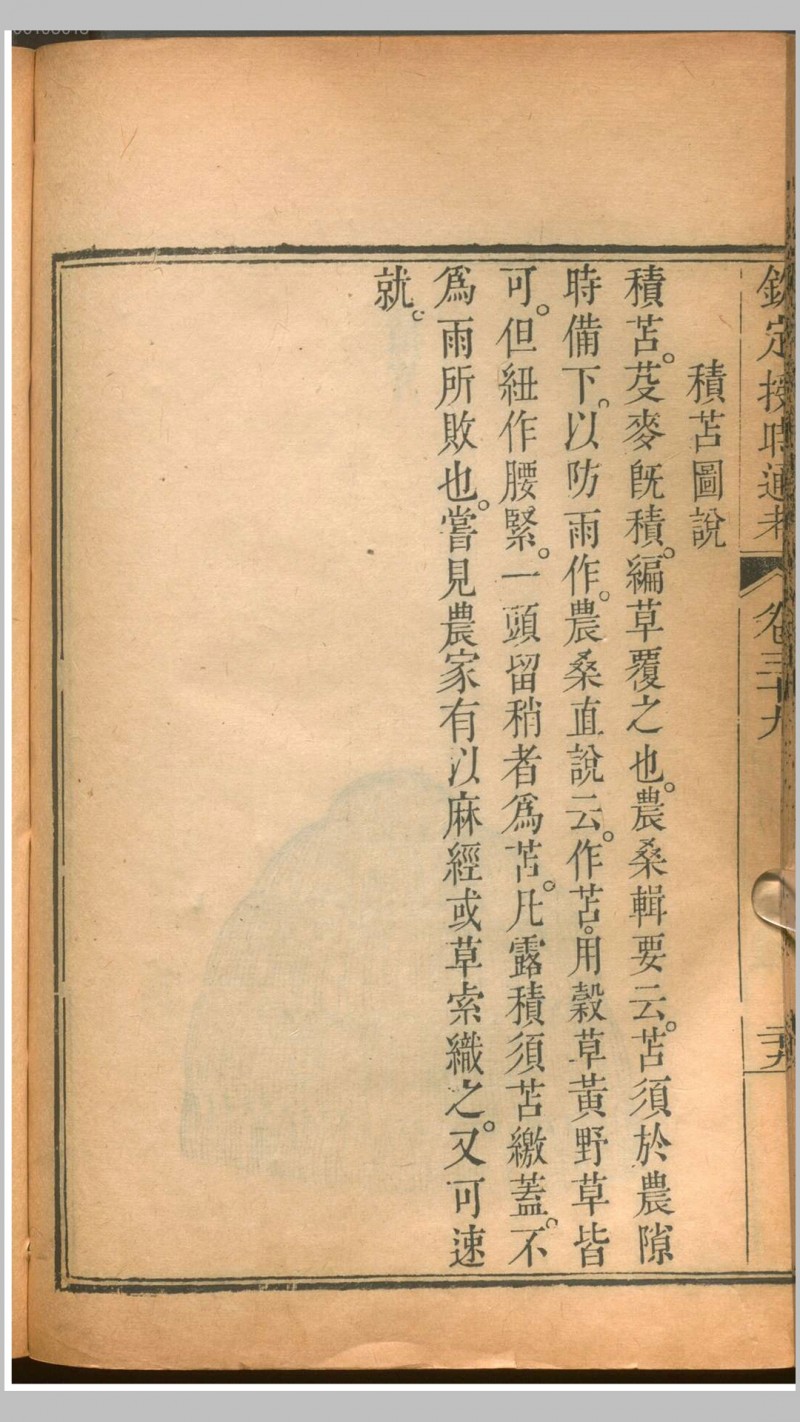 欽定授時通考 卷三十九
積苫圖說
積苫。芟麥既積。編草覆之也。農桑輯要云。苫須於農隙
時備下。以防雨作。農桑直說云。作苫。用穀草黃野草皆
可。但紐作腰緊。一頭留稍者爲苫。凡露積須苫繳蓋。不
爲雨所敗也。嘗見農家有以麻經或草索織之。又可速
就。